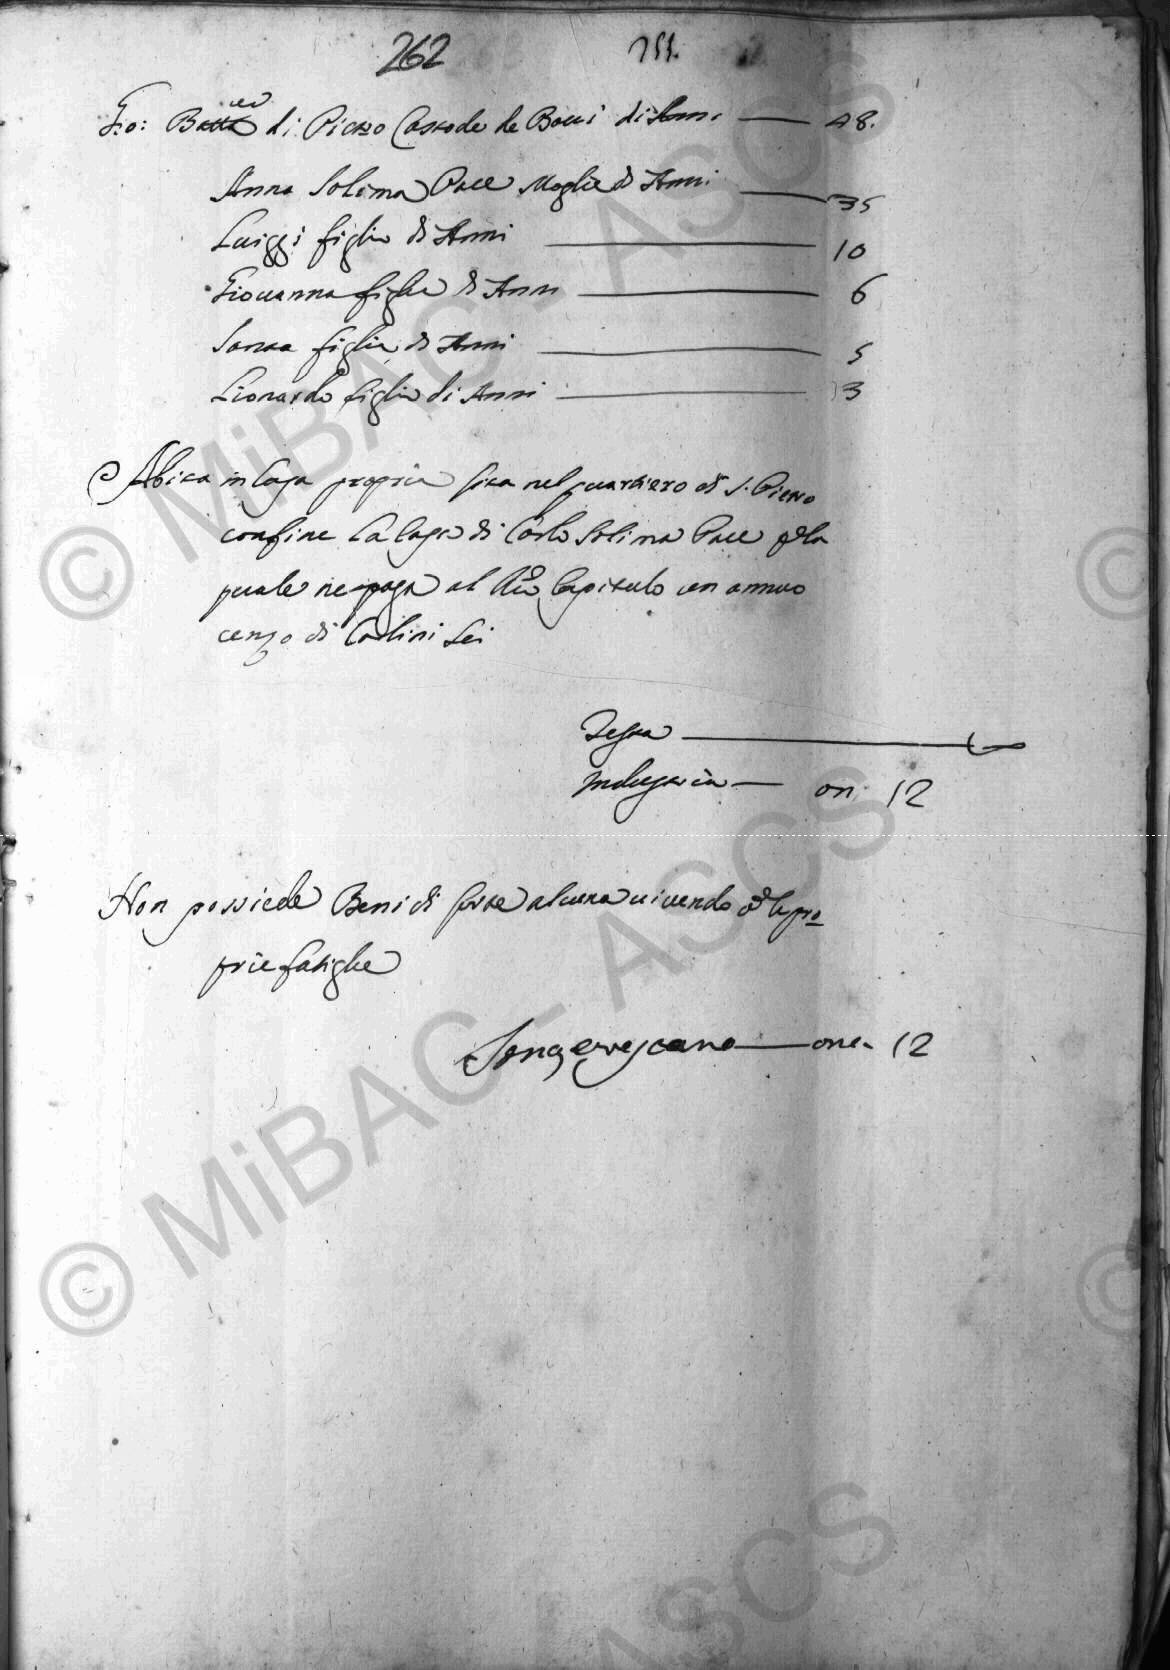 262 255.
Gio: Batta di Pietro Custode de Bovi di Anni — 48.
Anna Solima Pace Moglie di Anni — 35
Luiggi figlio di Anni — 10
Giovanna figlia di Anni — 6
figlia di Anni — 5
Lionardo figlio di Anni — 3
Abita in Casa propria sita nel quartiero di S. Pietro
confine la Casa di Carlo Solima Pace p la
quale ne paga al Capitulo un annuo
cenzo di Carlini Sei
Testa —
Industria — on: 12
Non possiede Beni di sorte alcuna vivendo le pro
prie fatighe
— once 12
© MiBAC - ASCS
© MiBAC - ASCS
ASCS